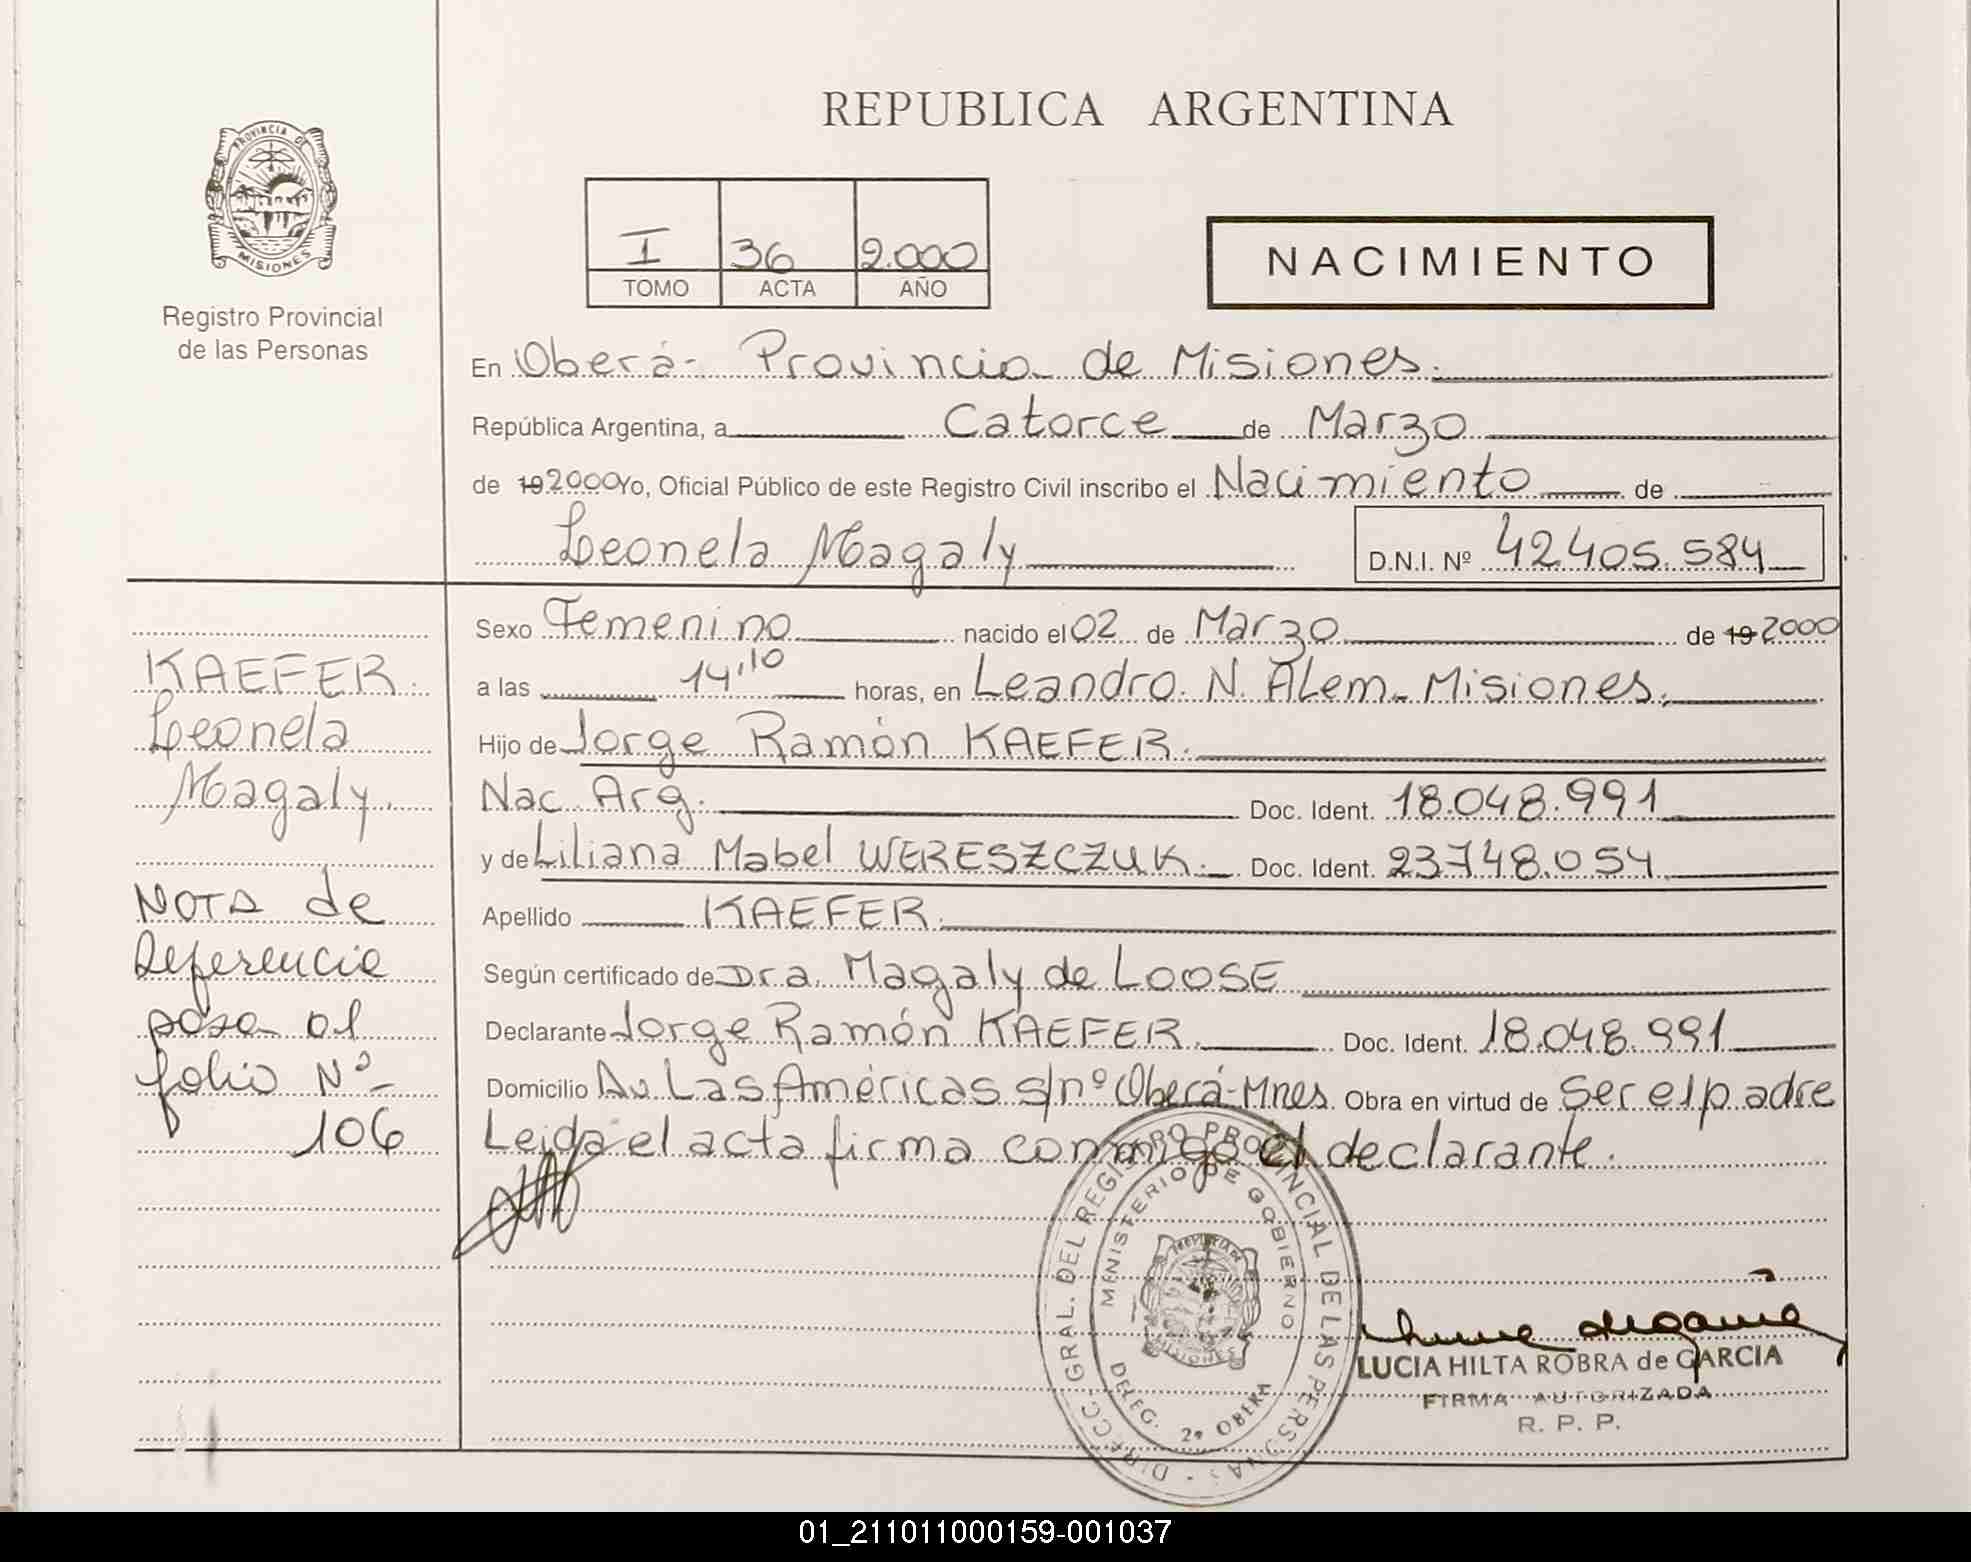 REPUBLICA ARGENTINA
PROVINCIA DE
MISIONES
Registro Provincial
de las Personas
I 36 2.000
TOMO ACTA AÑO
NACIMIENTO
En Oberá- Provincia de Misiones.
República Argentina, a Catorce de Marzo
de 19 2000 Yo, Oficial Público de este Registro Civil inscribo el Nacimiento de
Leonela Magaly D.N.I. Nº 42405.584
Sexo Femenino nacido el 02 de Marzo de 19 2000
a las 14,10 horas, en Leandro. N. ALem. Misiones.
Hijo de Jorge Ramón KAEFER.
Nac. Arg. Doc. Ident. 18.048.991
y de Liliana Mabel WERESZCZUK. Doc. Ident. 23748.054
Apellido KAEFER.
Según certificado de Dra. Magaly de LOOSE
Declarante Jorge Ramón KAEFER. Doc. Ident. 18.048.991
Domicilio Av. Las Américas s/nº Oberá-Mnes. Obra en virtud de ser el padre
Leida el acta firma conmigo el declarante.
KAEFER.
Leonela
Magaly.
NOTA de
Referencia
pasa al
folio Nº
106
DIRECC. GRAL. DEL REGISTRO PROVINCIAL DE LAS PERSONAS
MINISTERIO DE GOBIERNO
PROVINCIA DE
MISIONES
DELEG. 2ª OBERA
LUCIA HILTA ROBRA de GARCIA
FIRMA AUTORIZADA
R. P. P.
01_211011000159-001037